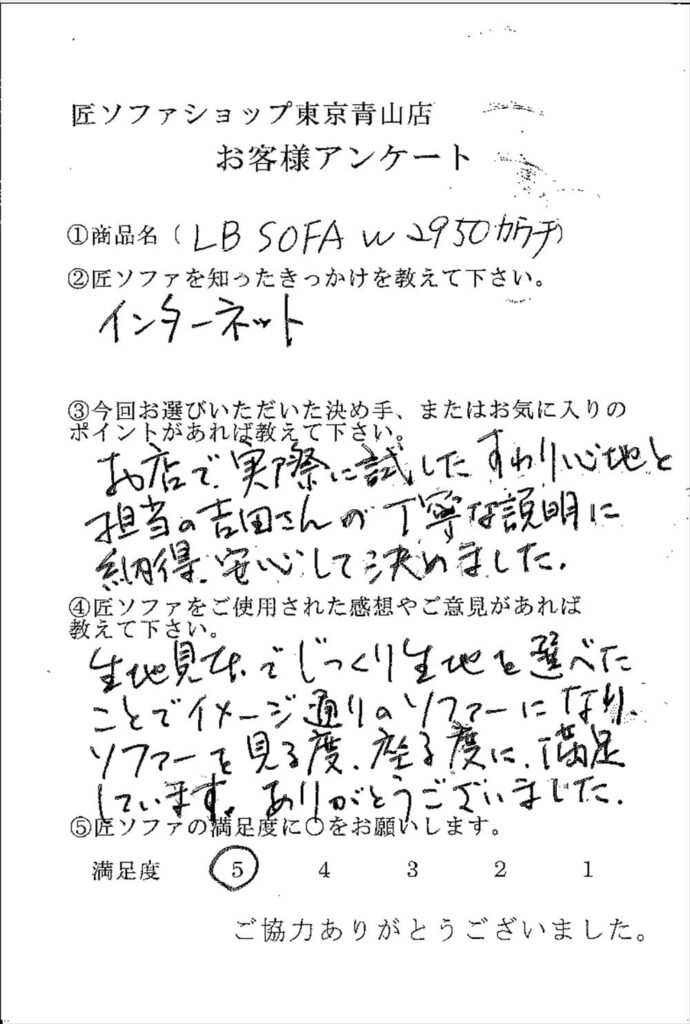 匠ソファショップ東京青山店
お客様アンケート
①商品名（ LB SOFA W2950カウチ）
②匠ソファを知ったきっかけを教えて下さい。
インターネット
③今回お選びいただいた決め手、またはお気に入りの
ポイントがあれば教えて下さい。
お店で実際に試したすわり心地と
担当の吉田さんの丁寧な説明に
納得、安心して決めました.
④匠ソファをご使用された感想やご意見があれば
教えて下さい。
生地見本でじっくり生地を選べた
ことでイメージ通りのソファーになり、
ソファーを見る度、座る度に、満足
しています。ありがとうございました.
⑤匠ソファの満足度に〇をお願いします。
満足度 5 4 3 2 1
ご協力ありがとうございました。